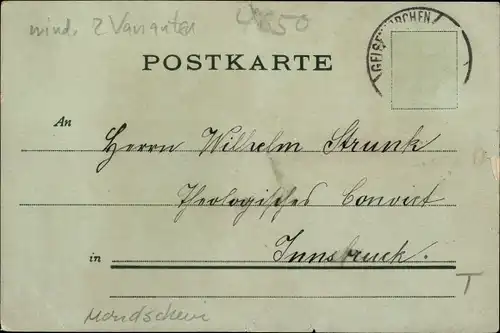 mind. 2 Varianten
4850
GELSENKIRCHEN
POSTKARTE
An
Herrn Wilhelm Strunk
Theologisches Convict
in Innsbruck.
T
Mondschein